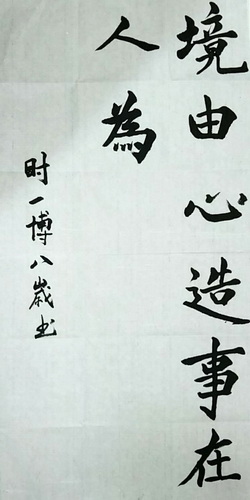 境由心造事在
人為
时一博八歳书